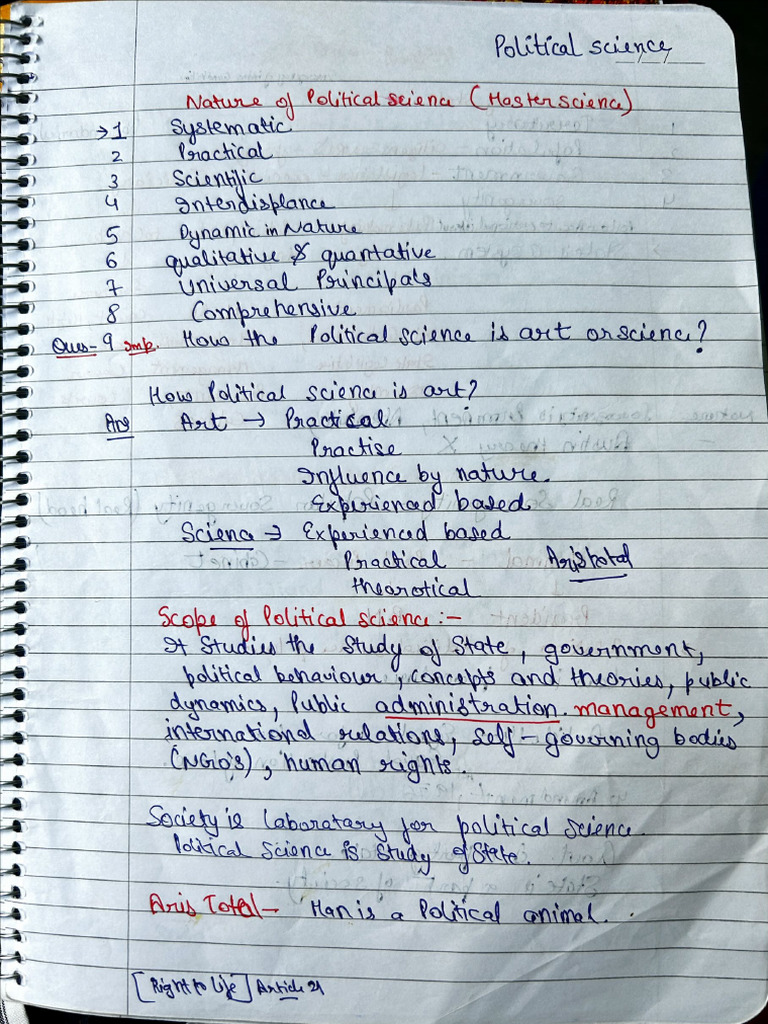 Political science
Nature of Political science (Master science)
→ 1 Systematic
2 Practical
3 Scientific
4 Interdisplance
5 Dynamic in Nature
6 qualitative & quantative
7 Universal Principals
8 Comprehensive
Ques- 9 Imp. How the Political science is art or science?
How Political science is art?
Ans Art → Practical
Practise
Influence by nature.
Experienced based
Science → Experienced based
Practical Aristotal
thearotical
Scope of Political science :-
It Studies the Study of State, government,
political behaviour, concepts and theories, public
dynamics, Public administration management,
international relations, self-governing bodies
(NGO'S), human rights.
Society is Laboratary for political science.
Political Science is Study of State.
Aris Total - Man is a Political animal.
[Right to Life] Article 21